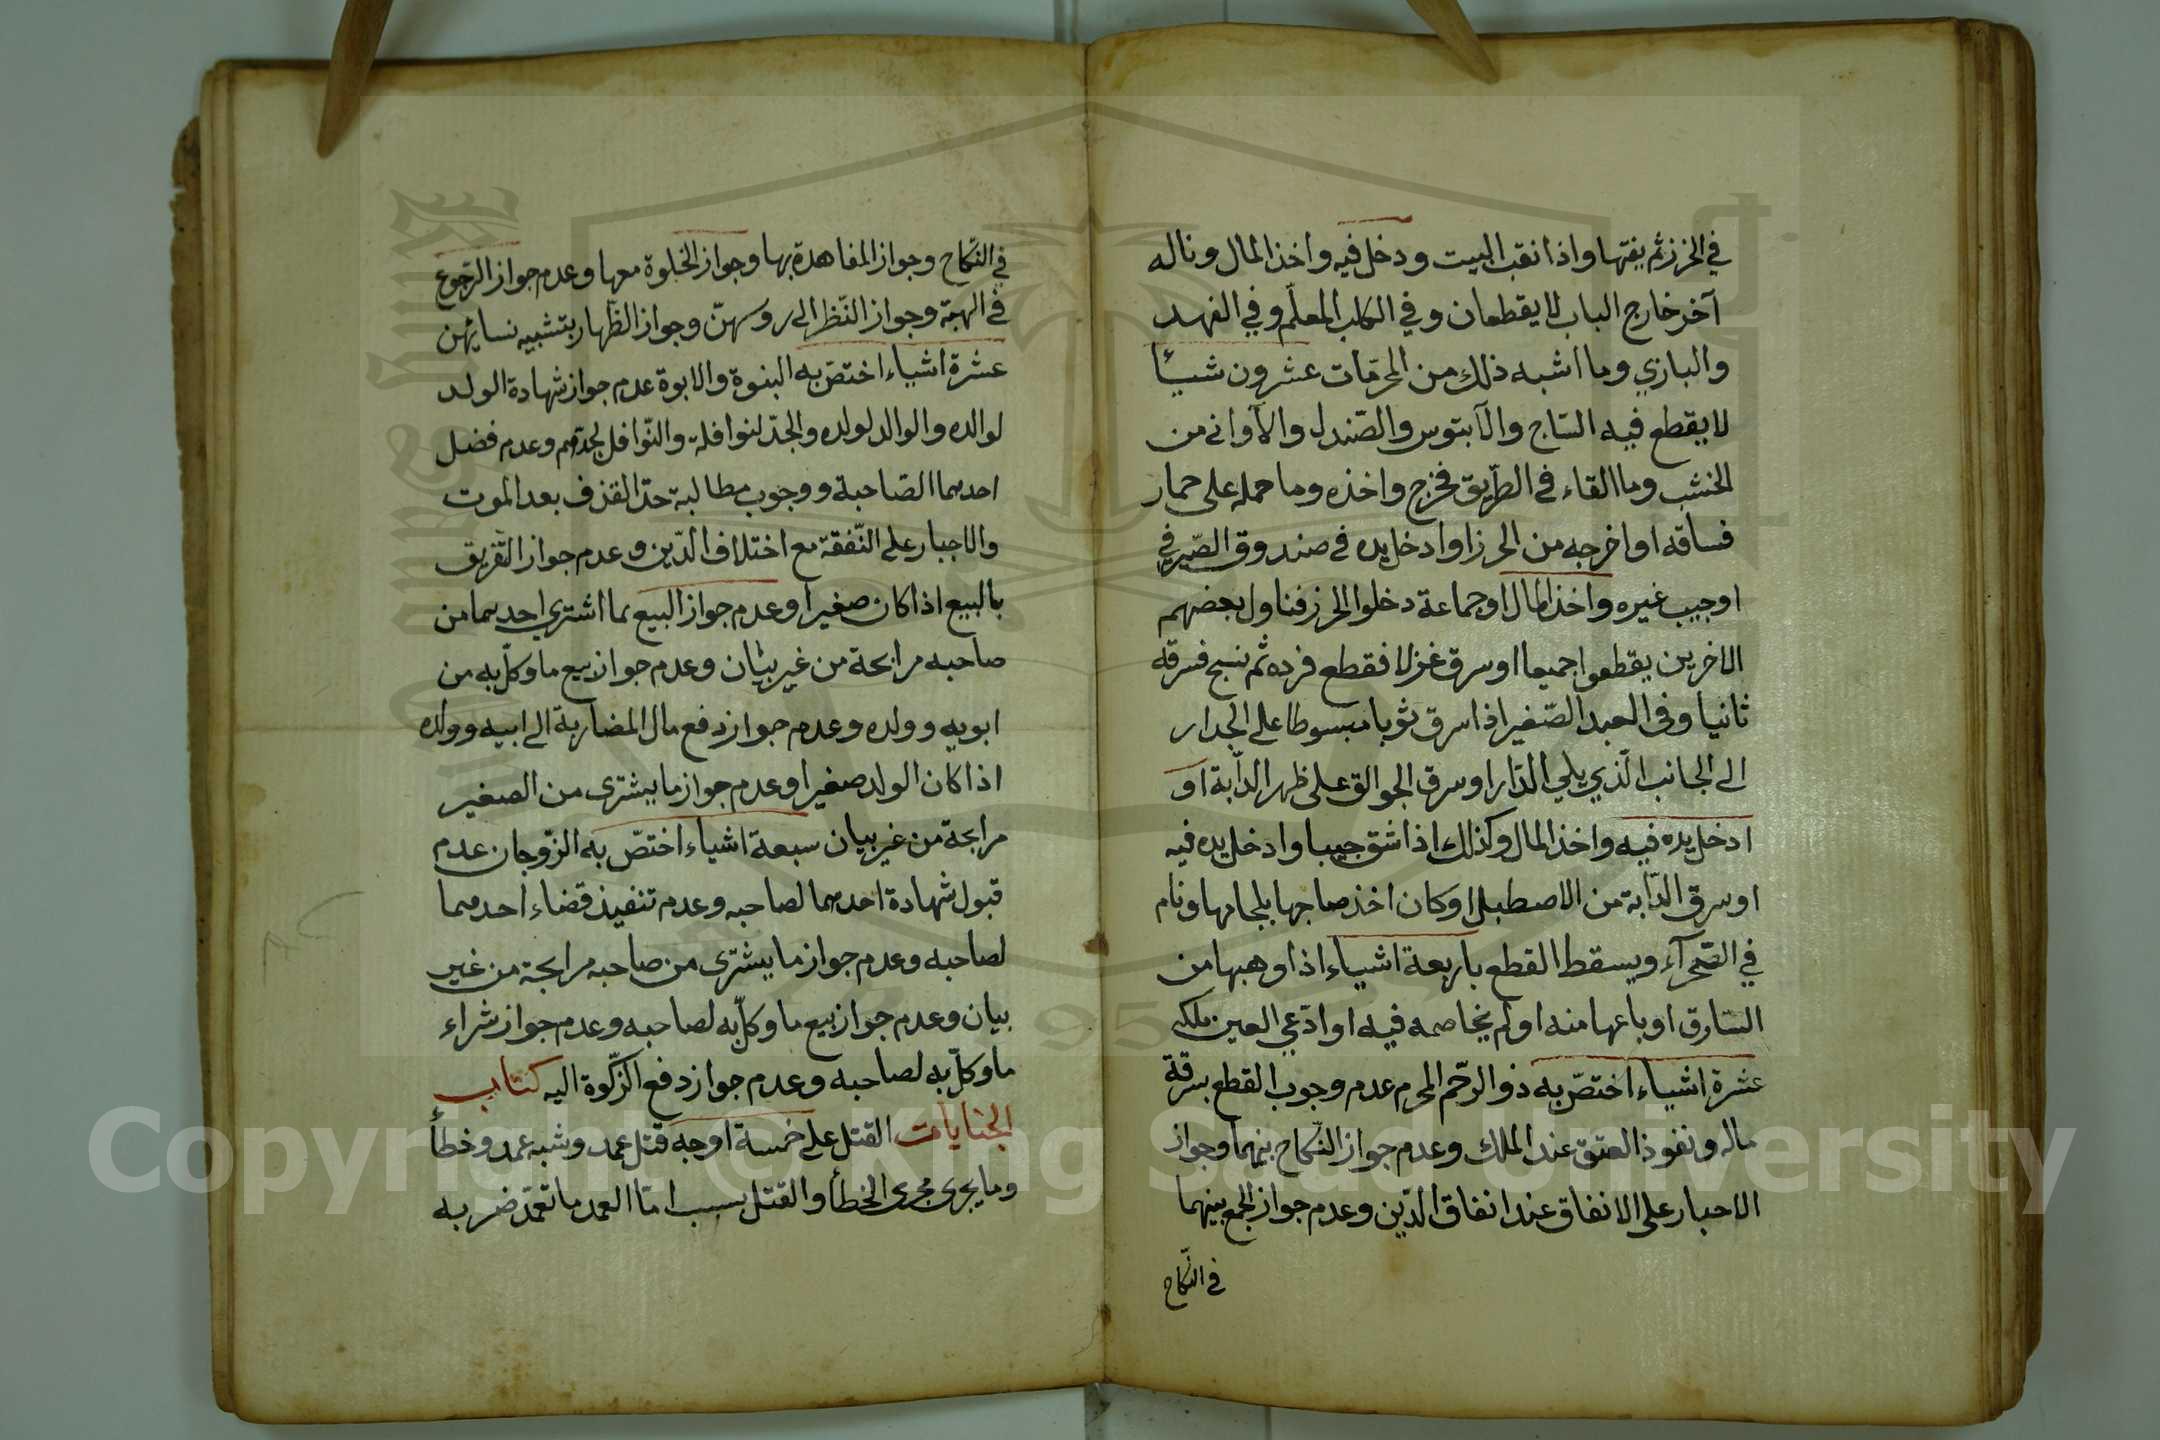 في الحرز ثم يفتها واذا نقب البيت ودخل فيه واخذ المال وناله
آخر خارج الباب لا يقطعان وفي الكلب المعلّم وفي الفهد
والبازي وما اشبه ذلك من المحرّمات عشرون شيئا
لا يقطع فيه السّاج والآبنوس والصّندل والأواني من
الخشب وما القاء في الطّريق فخرج واخذه وما حمله على حمار
فساقه او اخرجه من الحرز او ادخل يده في صندوق الصّيرفي
او جيب غيره واخذ المال او جماعة دخلوا الحرز فناول بعضهم
الاخرين يقطعوا جميعا او سرق غزلا فقطع فرده ثم نسج فسرقه
ثانيا وفي العبد الصّغير اذا سرق ثوبا مبسوطا على الجدار
الى الجانب الّذي يلي الدّار او سرق الجوالق على ظهر الدّابة او
ادخل يده فيه واخذ المال وكذلك اذا شق جيبا وادخل يده فيه
او سرق الدّابة من الاصطبل او كان اخذ صاحبها بلجامها ونام
في الصّحرآء ويسقط القطع باربعة اشياء اذا وهبها من
السّارق او باعها منه او لم يخاصمه فيه او ادّعي العين ملكه
عشرة اشياء اختصّ به ذو الرّحم المحرم عدم وجوب القطع بسرقة
ماله ونفوذ العتق عند الملك وعدم جواز النّكاح بينهما وجواز
الاجبار على الانفاق عند انفاق الدّين وعدم جواز الجمع بينهما
في النّكاح
في النّكاح وجواز المفاهدة بها وجواز الخلوة معها وعدم جواز الرّجوع
في الهبة وجواز النّظر الى روسهنّ وجواز الظّهار بتشبيه نسائهن
عشرة اشياء اختصّ به البنوة والابوة عدم جواز شهادة الولد
لوالده والوالد لولده والجدّ لنوافلة والنّوافل لجدّهم وعدم فضل
احدهما الصّاحبة ووجوب مطالبة حدّ القذف بعد الموت
والاجبار على النّفقة مع اختلاف الدّين وعدم جواز التّفريق
بالبيع اذا كان صغيرا وعدم جواز البيع بما اشتري احدهما من
صاحبه مرابحة من غير بيان وعدم جواز بيع ما وكلّ به من
ابويه وولده وعدم جواز دفع مال المضاربة الى ابيه وولده
اذا كان الولد صغيرا وعدم جواز ما يشترى من الصغير
مرابحة من غير بيان سبعة اشياء اختصّ به الزّوجان عدم
قبول شهادة احدهما لصاحبه وعدم تنفيذ قضاء احدهما
لصاحبه وعدم جواز ما يشترى من صاحبه مرابحة من غير
بيان وعدم جواز بيع ما وكلّ به لصاحبه وعدم جواز شراء
ما وكلّ به لصاحبه وعدم جواز دفع الزّكوة اليه كتاب
الجنايات القتل على خمسة اوجه قتل عمد وشبه عمد وخطأ
وما يجرى مجرى الخطأ والقتل بسبب امّا العمد ما تعمّد ضربه
Copyright © King Saud University